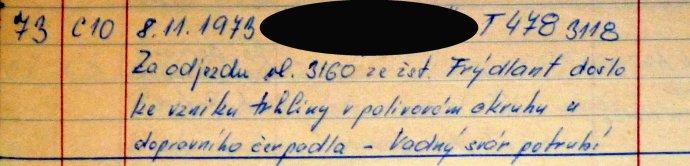 73 C10 8.11.1973 T 478 3118
Za odjezdu vl. 3160 ze žst. Frýdlant došlo
ke vzniku trhliny v palivovém okruhu u
dopravního čerpadla - Vadný svár potrubí